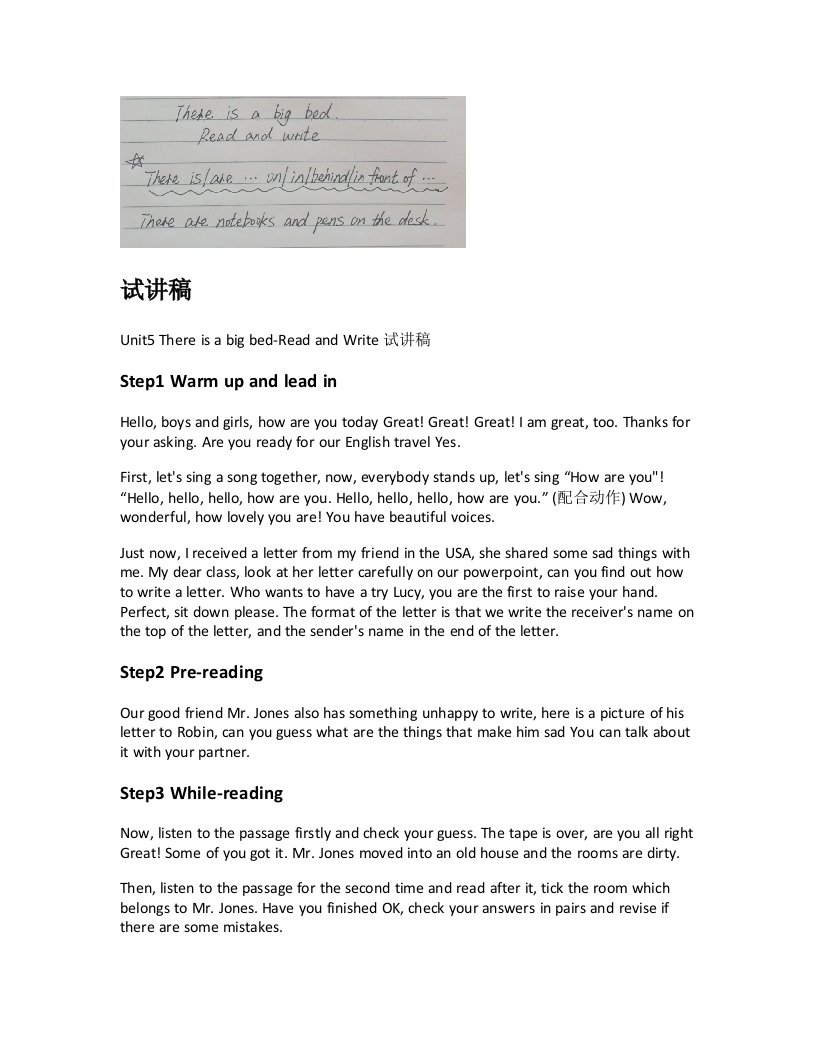 There is a big bed.
Read and write
There is/are ... on/in/behind/in front of ...
There are notebooks and pens on the desk.
试讲稿
Unit5 There is a big bed-Read and Write 试讲稿
Step1 Warm up and lead in
Hello, boys and girls, how are you today Great! Great! Great! I am great, too. Thanks for
your asking. Are you ready for our English travel Yes.
First, let's sing a song together, now, everybody stands up, let's sing “How are you"!
“Hello, hello, hello, how are you. Hello, hello, hello, how are you.” (配合动作) Wow,
wonderful, how lovely you are! You have beautiful voices.
Just now, I received a letter from my friend in the USA, she shared some sad things with
me. My dear class, look at her letter carefully on our powerpoint, can you find out how
to write a letter. Who wants to have a try Lucy, you are the first to raise your hand.
Perfect, sit down please. The format of the letter is that we write the receiver's name on
the top of the letter, and the sender's name in the end of the letter.
Step2 Pre-reading
Our good friend Mr. Jones also has something unhappy to write, here is a picture of his
letter to Robin, can you guess what are the things that make him sad You can talk about
it with your partner.
Step3 While-reading
Now, listen to the passage firstly and check your guess. The tape is over, are you all right
Great! Some of you got it. Mr. Jones moved into an old house and the rooms are dirty.
Then, listen to the passage for the second time and read after it, tick the room which
belongs to Mr. Jones. Have you finished OK, check your answers in pairs and revise if
there are some mistakes.